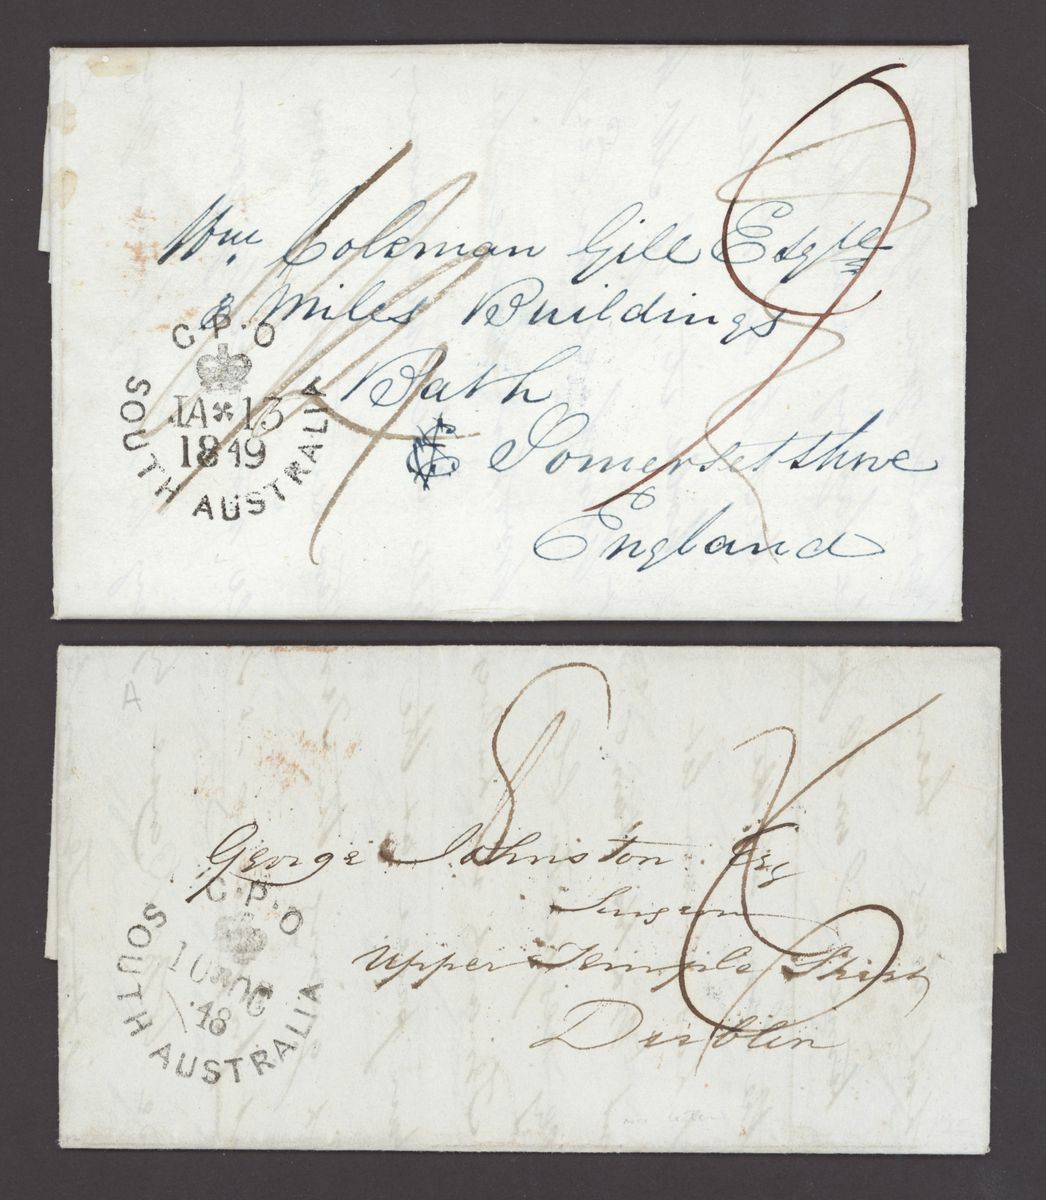 Wm. Coleman Gill Esqre
8 Miles Buildings
Bath
Somersetshire
England
G.P.O
JA 13
1849
SOUTH AUSTRALIA
8
George Johnston Esq
Surgeon
Upper Temple Street
Dublin
G.P.O
10 AUG
48
SOUTH AUSTRALIA